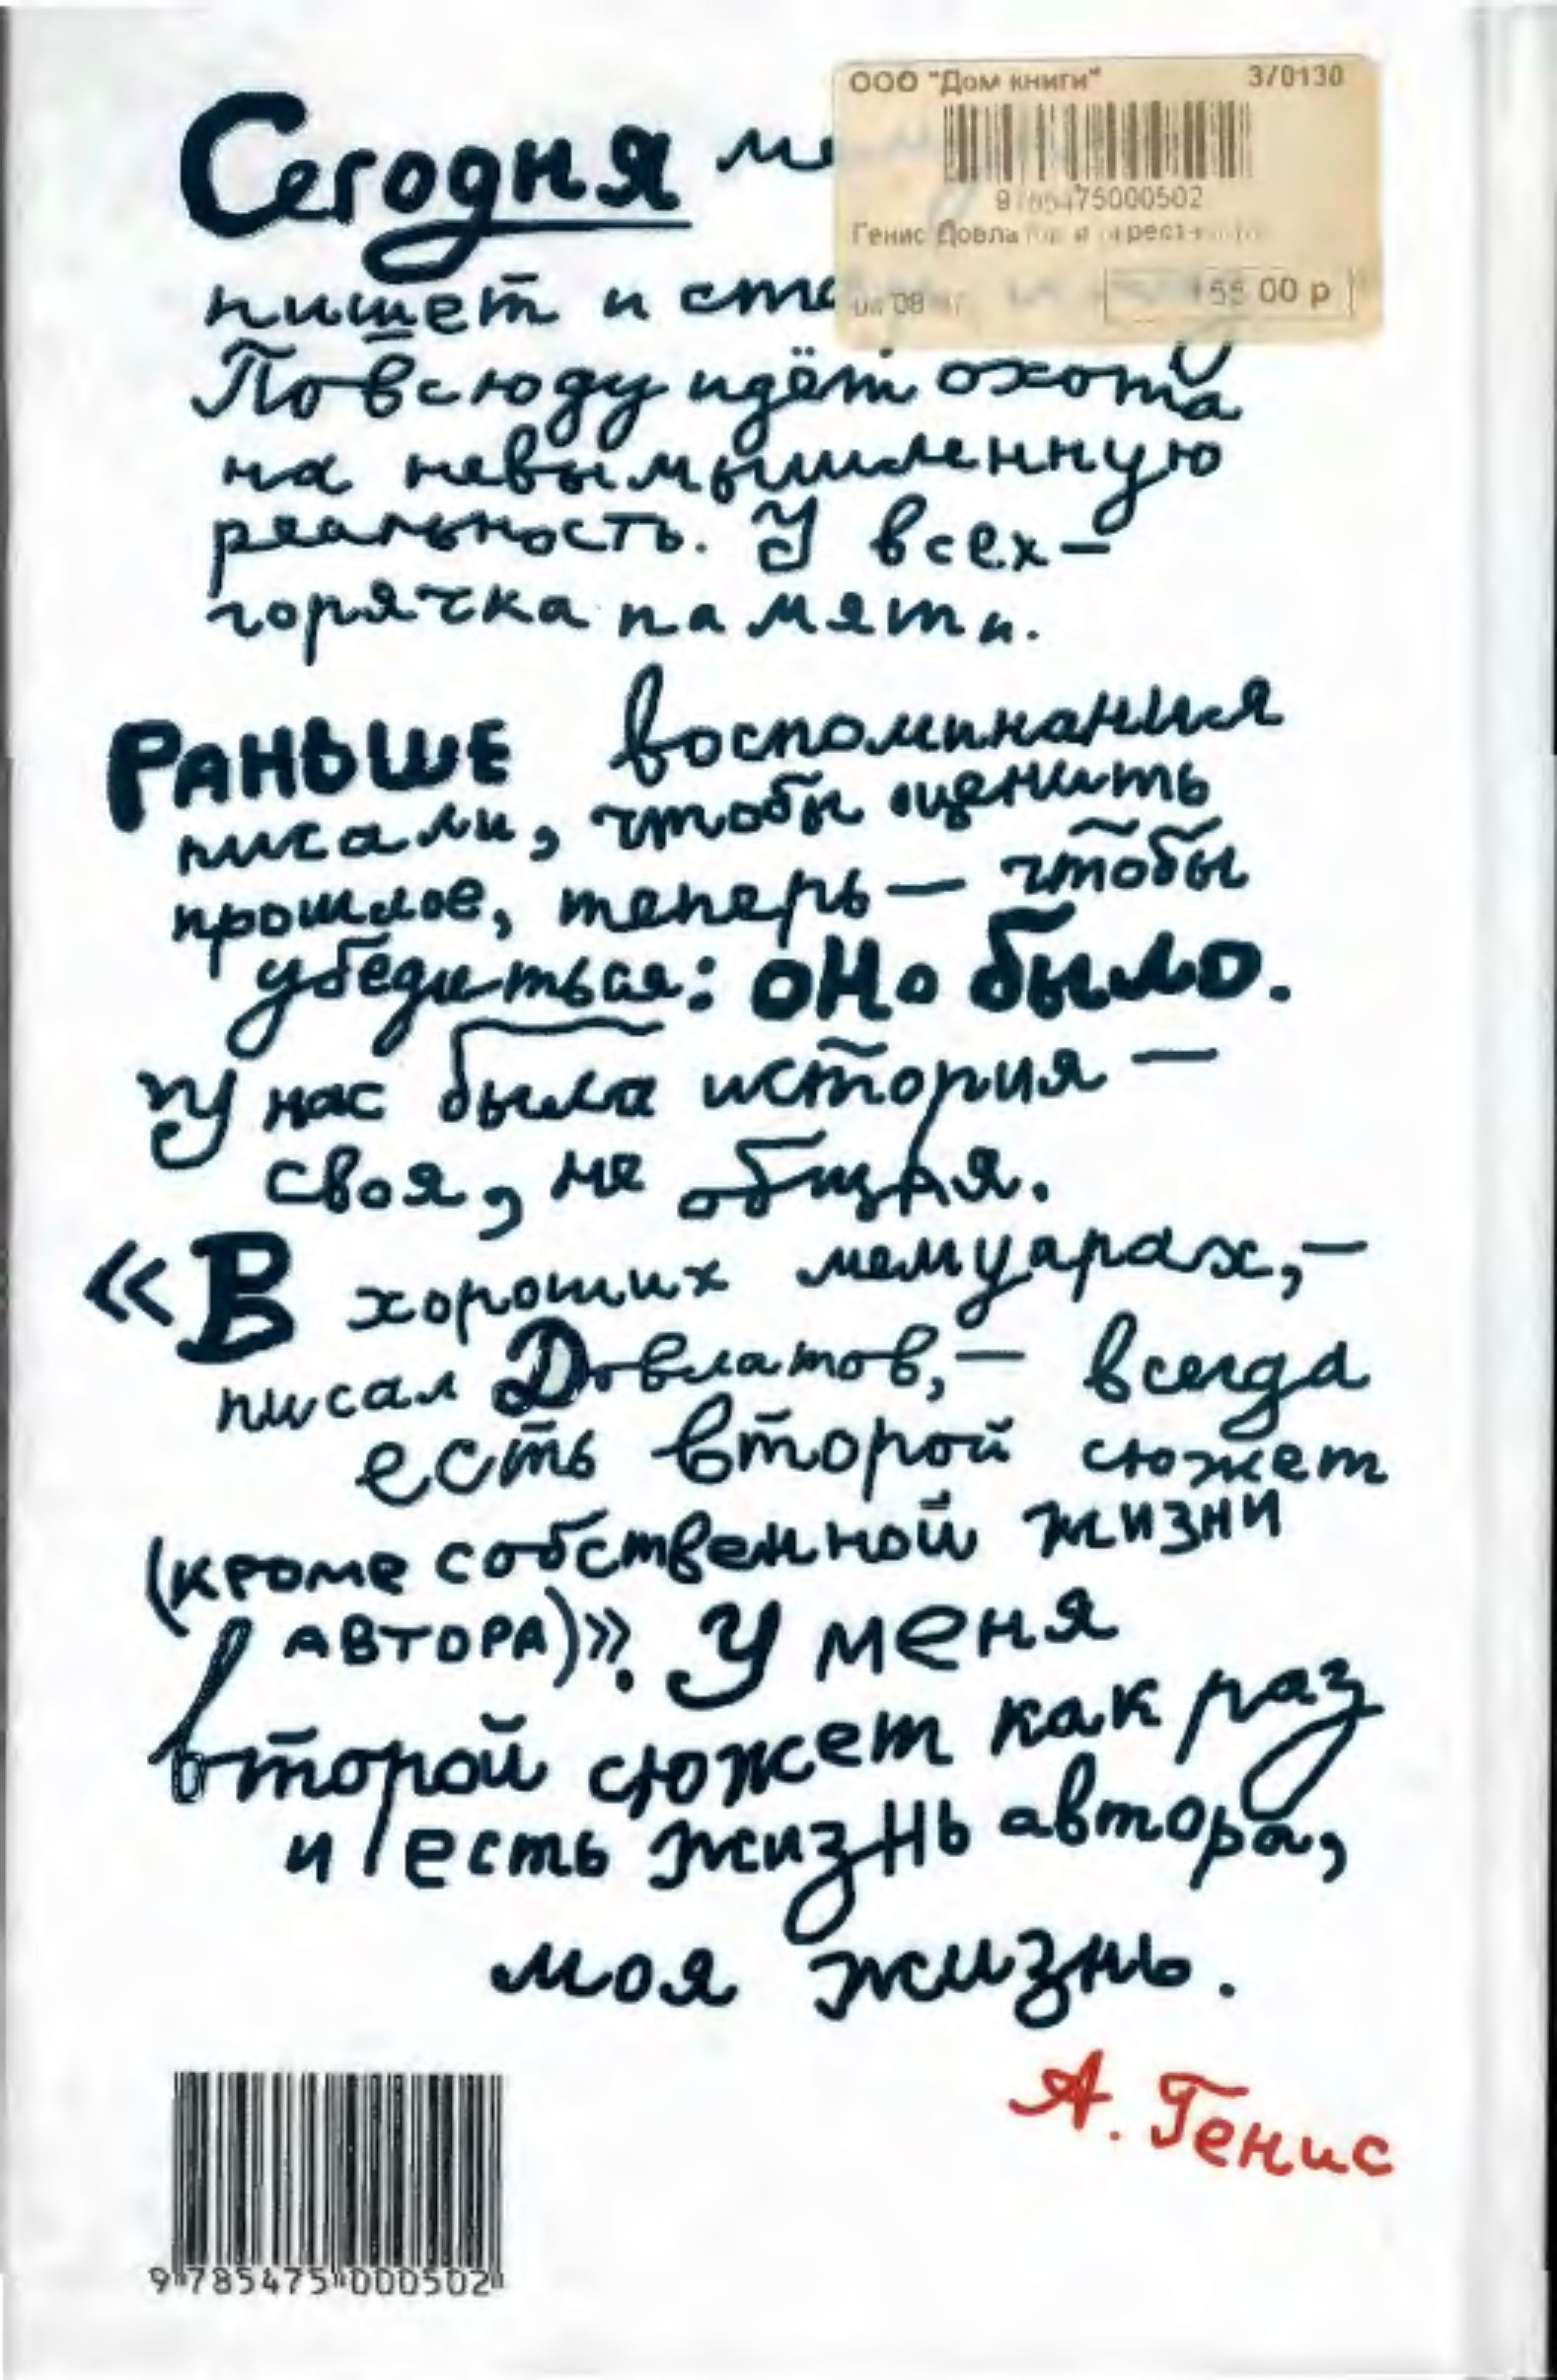 ООО "Дом книги" 3/0130
9785475000502
Генис Довла
00 р
Сегодня
пишет и
Повсюду идёт охота
на невымышленную
реальность. У всех –
горячка памяти.
Раньше воспоминания
писали, чтобы оценить
прошлое, теперь – чтобы
убедиться: оно было.
У нас была история –
своя, не общая.
«В хороших мемуарах, –
писал Довлатов, – всегда
есть второй сюжет
(кроме собственной жизни
автора)». У меня
второй сюжет как раз
и есть жизнь автора,
моя жизнь.
А. Генис
9 785475 000502